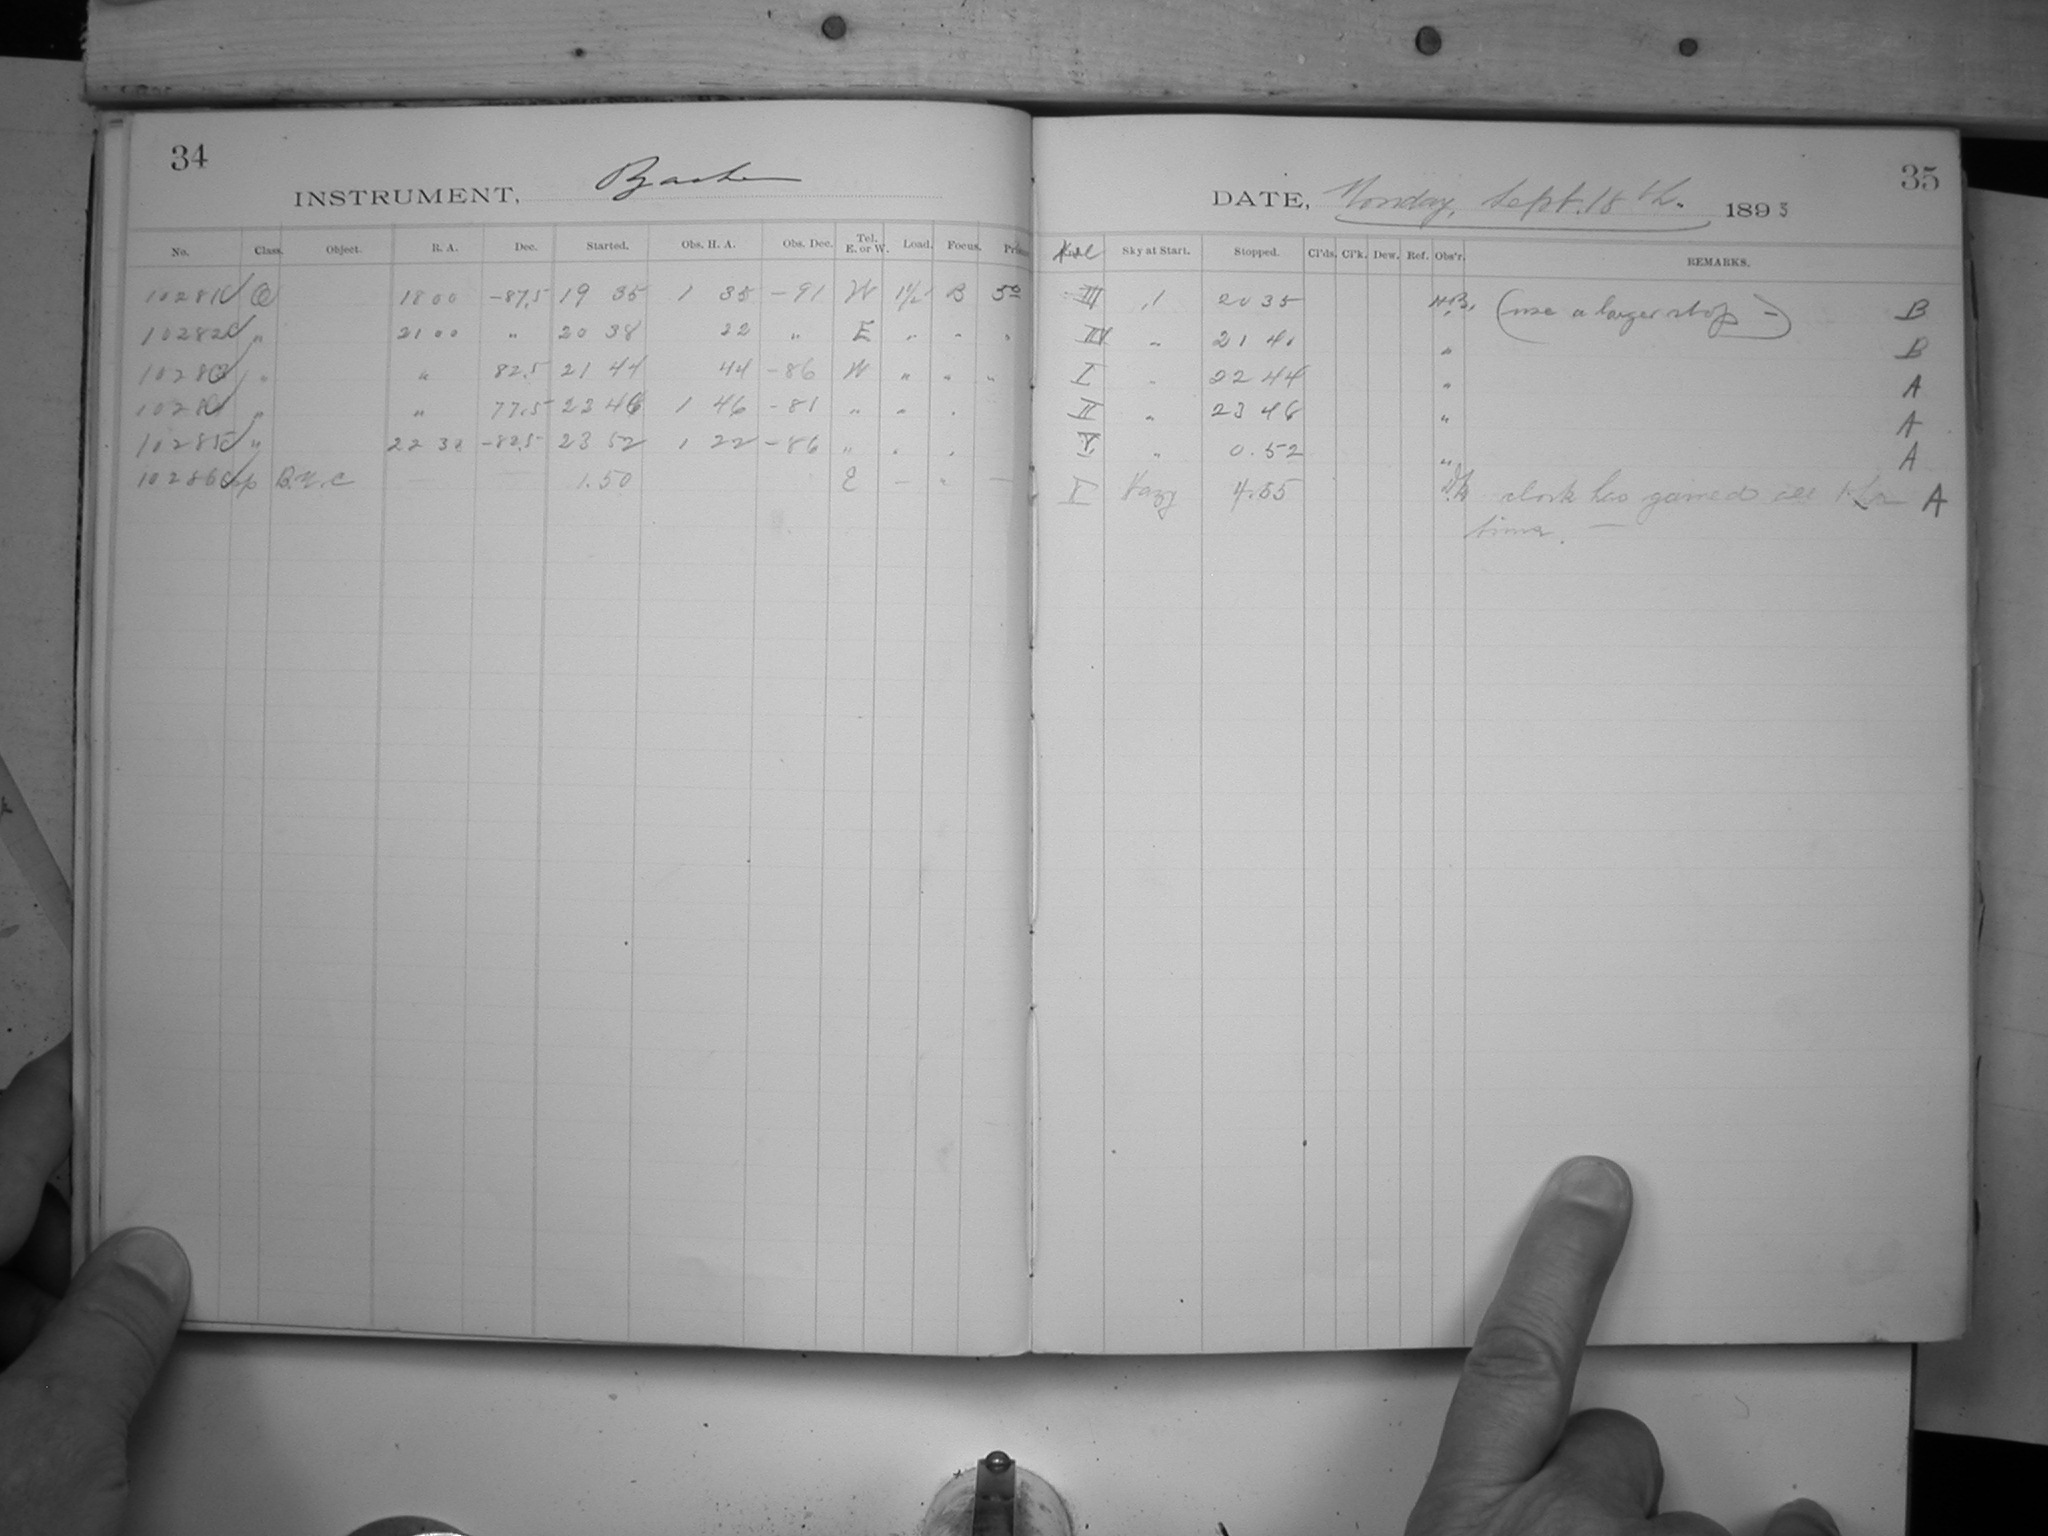 34
INSTRUMENT, Bache
No. Class. Object. R. A. Dec. Started. Obs. H. A. Obs. Dec. Tel. E. or W. Load. Focus.
10281 C 18 00 -87.5 19 35 1 35 -91 W 1½ B 50
10282 " 21 00 " 20 38 22 " E " " "
1028 " " 82.5 21 44 44 -86 W " " "
1028 " " 77.5 23 46 1 46 -81 " " "
10285 " 22 30 -82.5 23 52 1 22 -86 " " "
10286 Sp 1.50 E — " —
35
DATE, Monday, Sept. 18th. 1893
Sky at Start. Stopped. Cl'ds. Cl'k. Dew. Ref. Obs'r. REMARKS.
III 20 35 (use a larger stop —) B
" 21 41 " B
I " 22 44 " A
II " 23 46 " A
" 0.52 " A
Hazy 4.55 clock has gained all the A
time. —